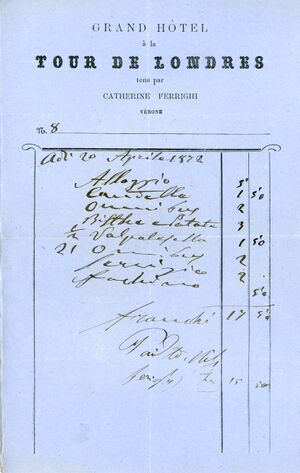 GRAND HÔTEL
à la
TOUR DE LONDRES
tenu par
CATHERINE FERRIGHI
VÉRONE
No. 8
Adi 20 Aprile 1872
Alloggio 5
Candella 1 50
Omnibus 2
Bistke e Patate 3
1/2 Valpolesella 1 50
21 Omnibus 2
Servizio 2
Facchino 50
Franchi 17 50
15